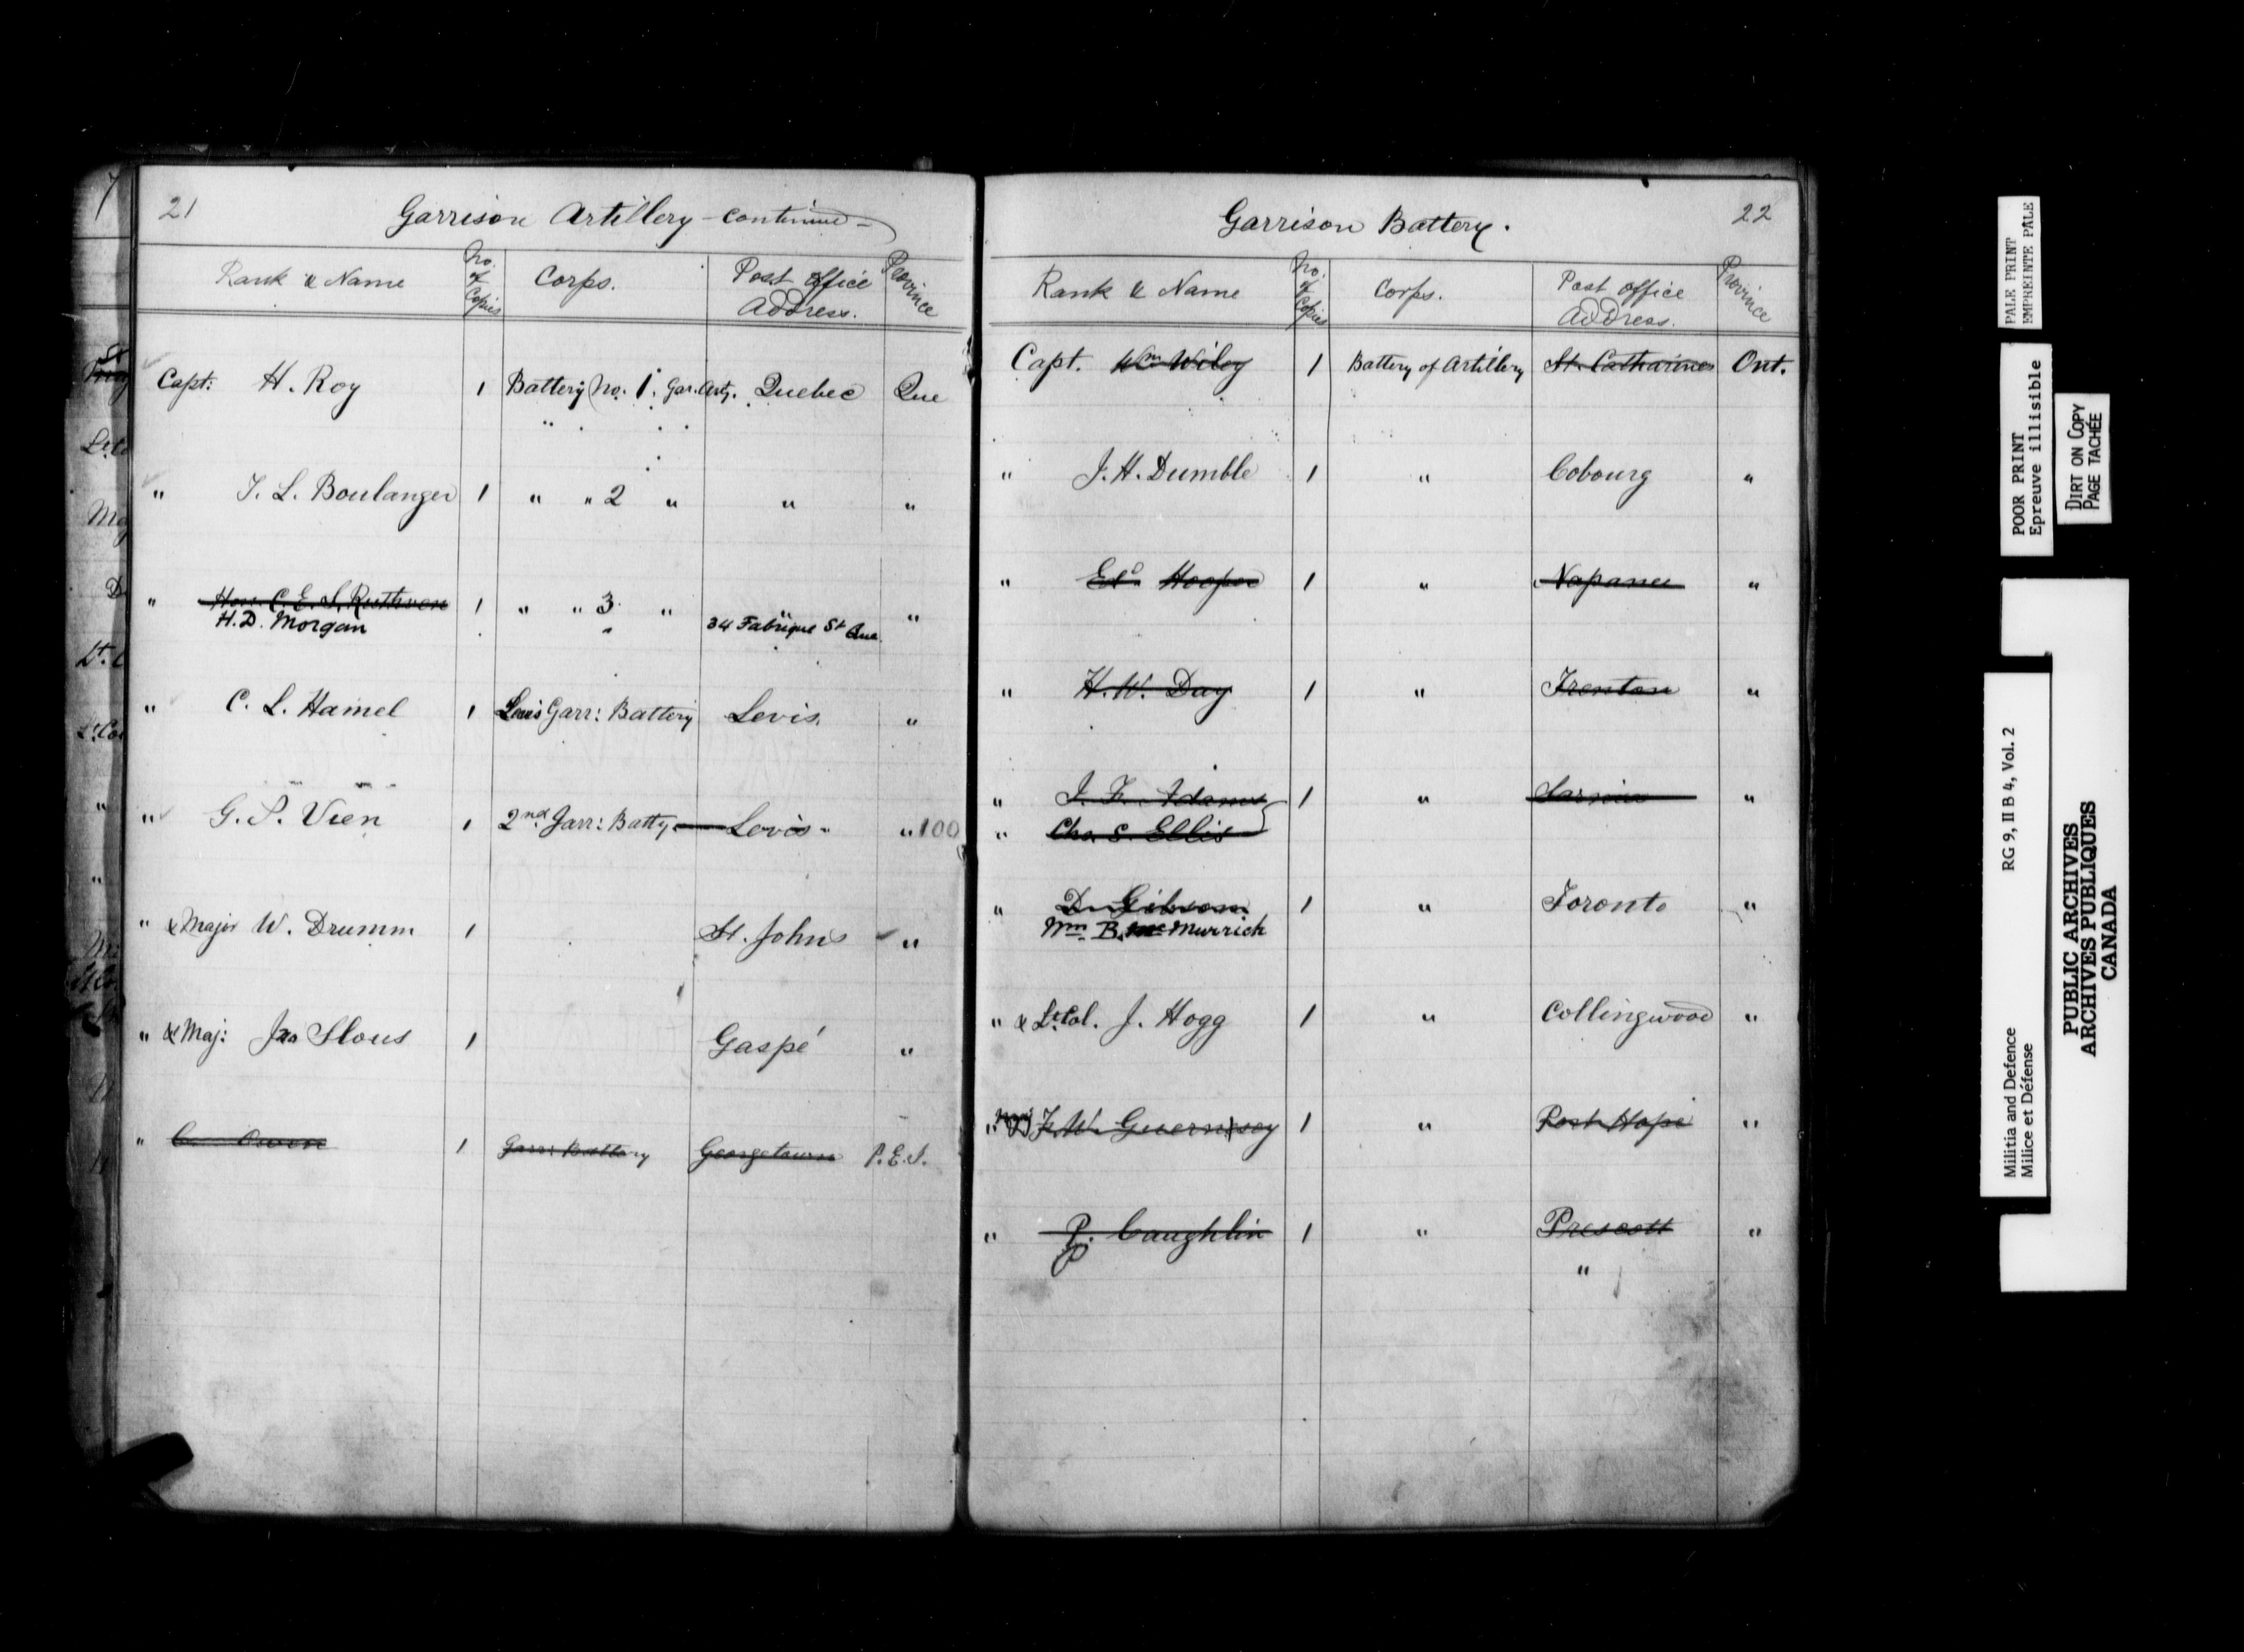 21
Garrison Artillery - continued -
Rank & Name No. of Copies Corps. Post Office Address. Province
Capt: H. Roy 1 Battery No. 1. Gar. Arty. Quebec Que
" J. L. Boulanger 1 " " 2 " " "
" Hon. C. E. S. Ruthven 1 " " 3 " " "
H. D. Morgan " 34 Fabrique St Que.
" C. L. Hamel 1 Levis Garr: Battery Levis. "
" G. P. Vien 1 2nd Garr: Batty. Levis " " 100
" & Major W. Drumm 1 St. Johns "
" & Maj: Jno Slous 1 Gaspé "
" C. Owen 1 Garr: Battery Georgetown P.E.I.
22
Garrison Battery.
Rank & Name No. of Copies Corps. Post Office Address. Province
Capt. Wm Wiley 1 Battery of Artillery St. Catharines Ont.
" J. H. Dumble 1 " Cobourg "
" Ed. Hooper 1 " Napanee "
" H. W. Day 1 " Trenton "
" J. F. Adams 1 " Sarnia "
" Chs. S. Ellis
" D. Gibson 1 " Toronto "
Wm. B. McMurrich
" & Lt. Col. J. Hogg 1 " Collingwood "
" F. W. Guernsey 1 " Port Hope "
" P. Caughlin 1 " Prescott "
P "
PALE PRINT
EMPREINTE PALE
POOR PRINT
Epreuve illisible
DIRT ON COPY
PAGE TACHÉE
RG 9, II B 4, Vol. 2
Militia and Defence
Milice et Défense
PUBLIC ARCHIVES
ARCHIVES PUBLIQUES
CANADA